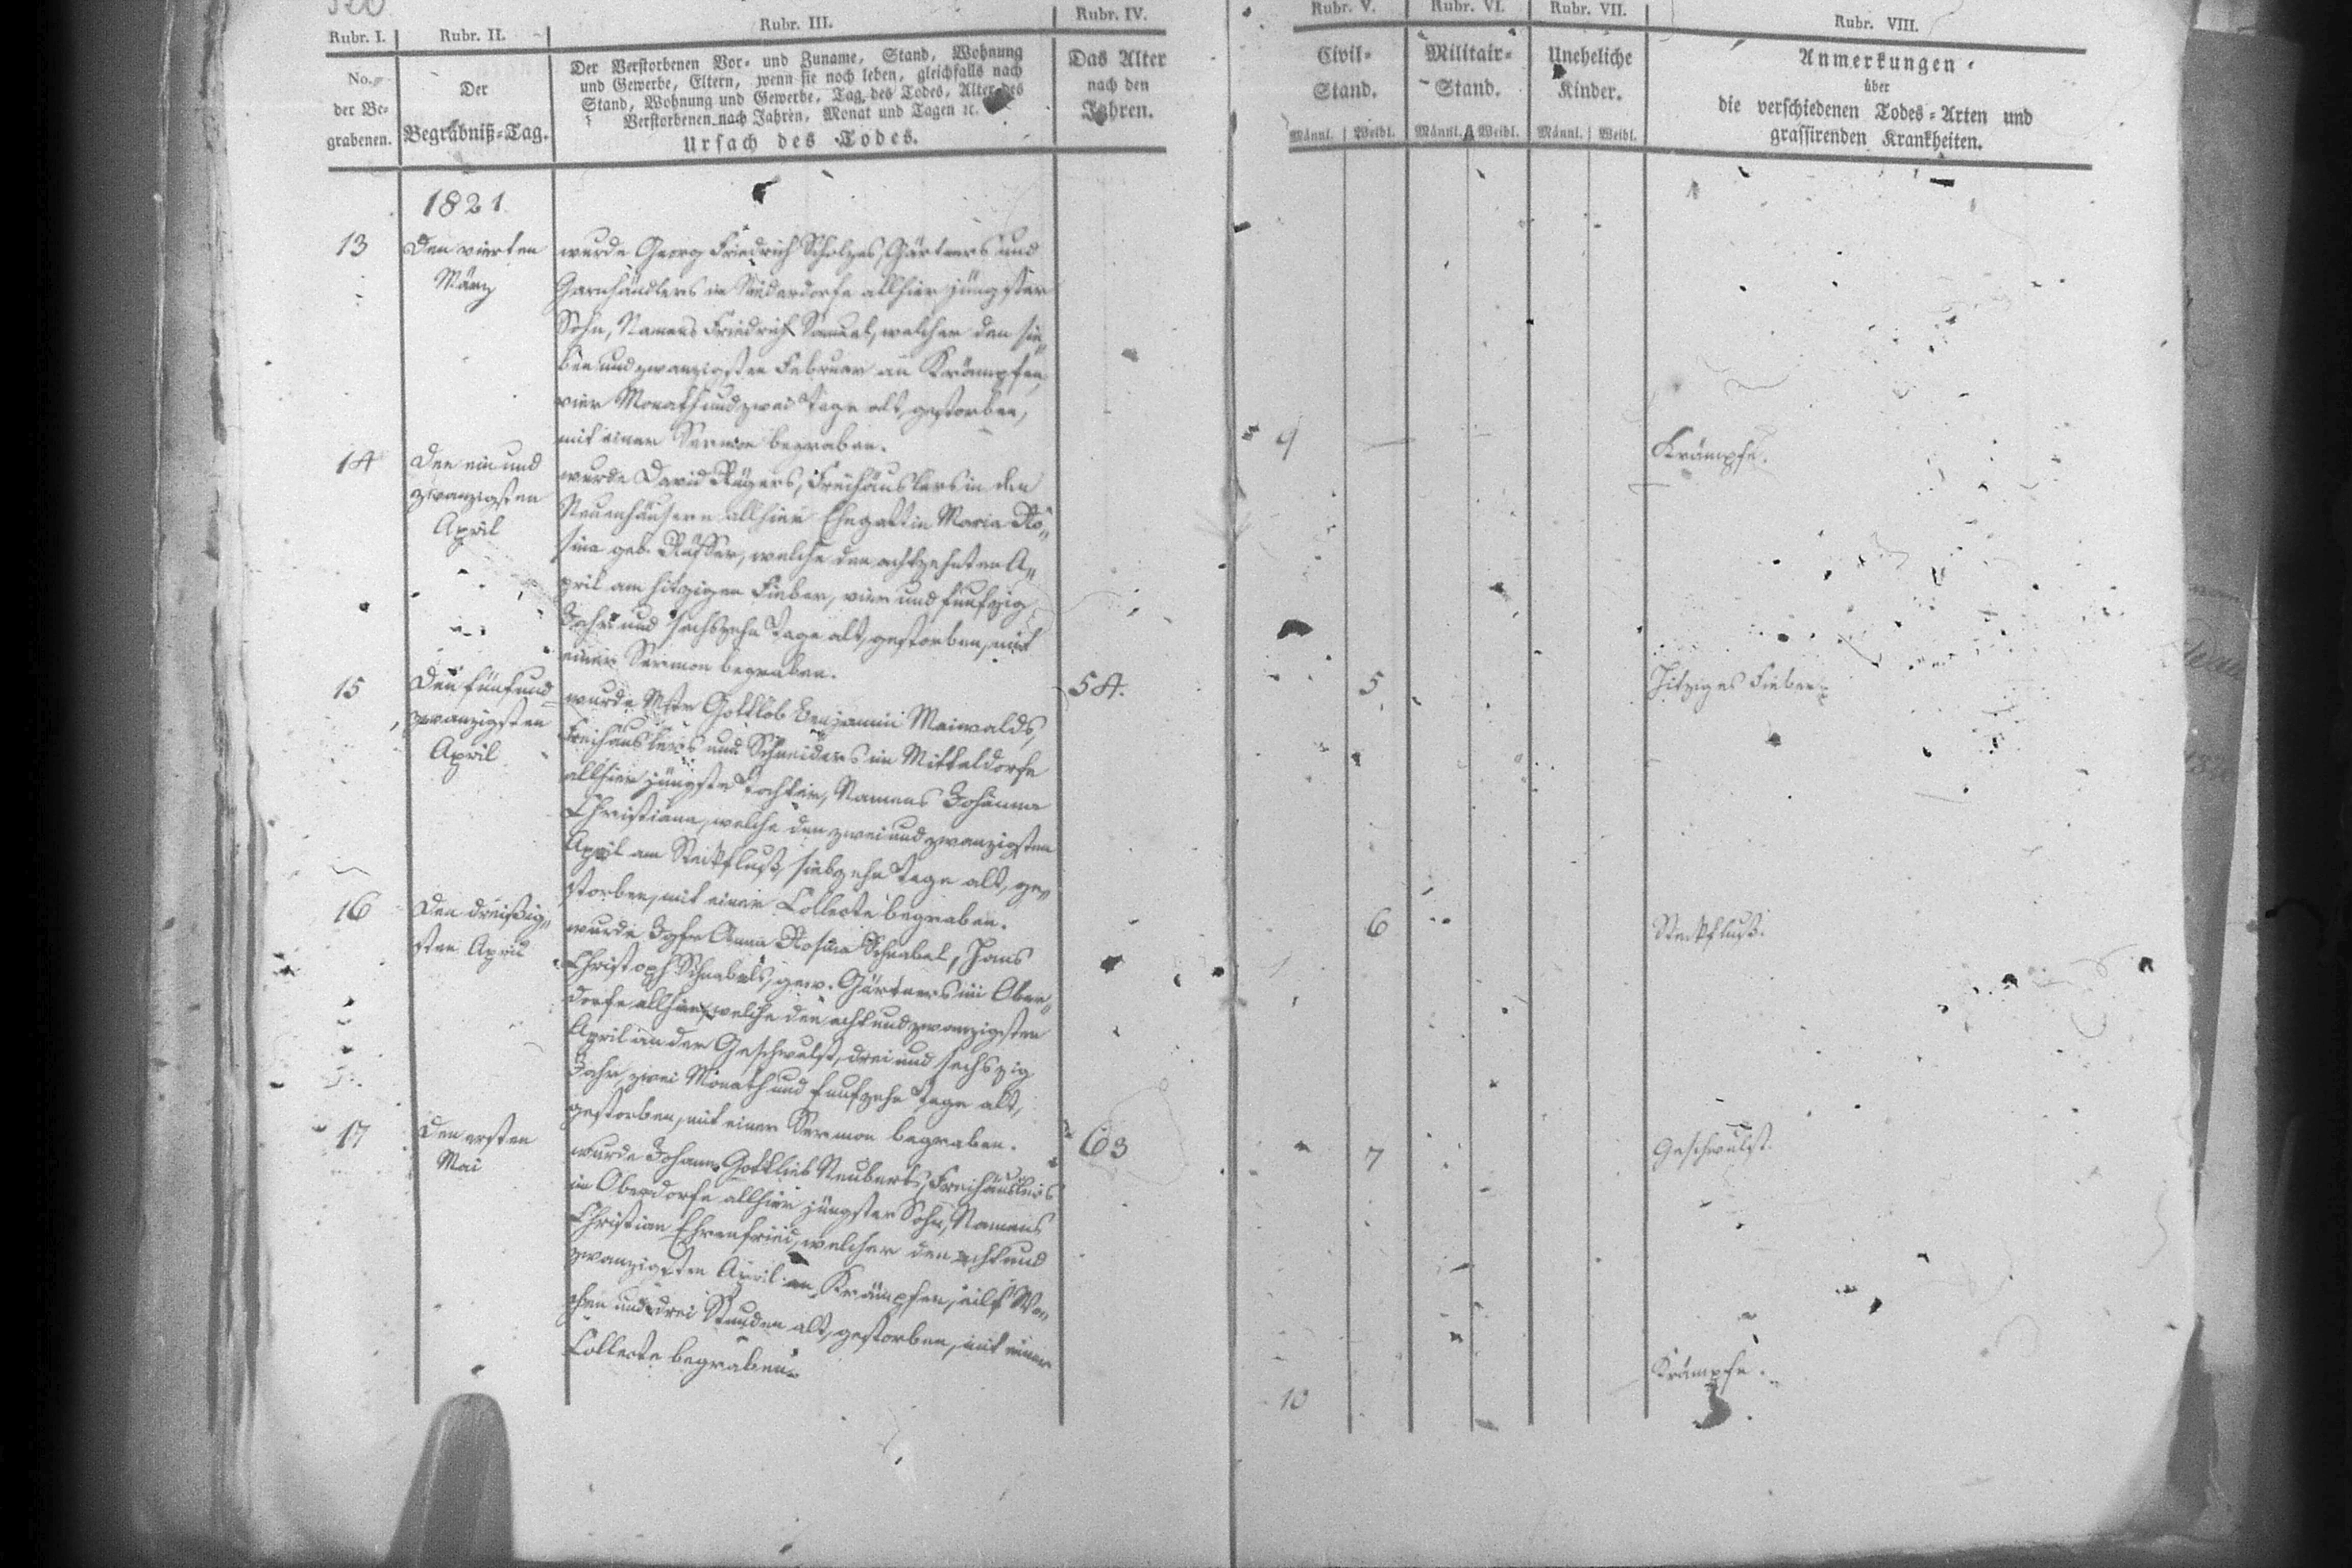 Rubr. I.
Rubr. II.
Rubr. III.
Rubr. IV.
Rubr. V.
Rubr. VI.
Rubr. VII.
Rubr. VIII.
No.
der Be-
grabenen.
Der
Begräbniß-Tag.
Der Verstorbenen Vor- und Zuname, Stand, Wohnung
und Gewerbe, Eltern, wenn sie noch leben, gleichfalls nach
Stand, Wohnung und Gewerbe, Tag des Todes, Alter des
Verstorbenen nach Jahren, Monat und Tagen ꝛc.
Ursach des Todes.
Das Alter
nach den
Jahren.
Civil-
Stand.
Männl. Weibl.
Militair-
Stand.
Männl. Weibl.
Uneheliche
Kinder.
Männl. Weibl.
Anmerkungen
über
die verschiedenen Todes-Arten und
grassirenden Krankheiten.
1821.
13
Den vierten
März
wurde Georg Friedrich Scholzes, Gärtners und
Garnhändlers im Niederdorfe allhier jüngster
Sohn, Namens Friedrich Samuel, welcher den sie-
ben und zwanzigsten Februar an Krämpfen,
vier Monath und zwei Tage alt, gestorben,
mit einer Sermon begraben.
9
Krämpfe.
14
Den ein und
zwanzigsten
April
wurde David Rügers, Freihäuslers in den
Neuenhäusern allhier Ehegattin Maria Ro-
sina geb. welche den achtzehnten A-
pril am hitzigen Fieber, vier und funfzig
Jahr und sechszehn Tage alt, gestorben, mit
einer Sermon begraben.
54.
5
Hitziges Fieber.
15
Den fünf und
zwanzigsten
April
wurde Mstr Gottlob Benjamin Maiwalds,
Freihäuslers und Schneiders im Mitteldorfe
allhier jüngste Tochter, Namens Johanna
Christiane, welche den zwei und zwanzigsten
April am Steckfluß, siebzehn Tage alt, ge-
storben, mit einer Collecte begraben.
6
Steckfluß.
16
Den dreißig-
sten April
wurde Jgfr Anna Rosina Schnabel, Hans
Christoph Schnabels, gew. Gärtners im Ober-
dorfe allhier, welche den acht und zwanzigsten
April an der Geschwulst, drei und sechszig
Jahr, zwei Monath und funfzehn Tage alt,
gestorben, mit einer Sermon begraben.
63
7
Geschwulst.
17
Den ersten
Mai
wurde Johann Gottlieb Neuberts, Freihäuslers
im Oberdorfe allhier jüngster Sohn, Namens
Christian Ehrenfried, welcher den acht und
zwanzigsten April an Krämpfen, eilf Wo-
chen und drei Stunden alt, gestorben, mit einer
Collecte begraben.
10
Krämpfe.